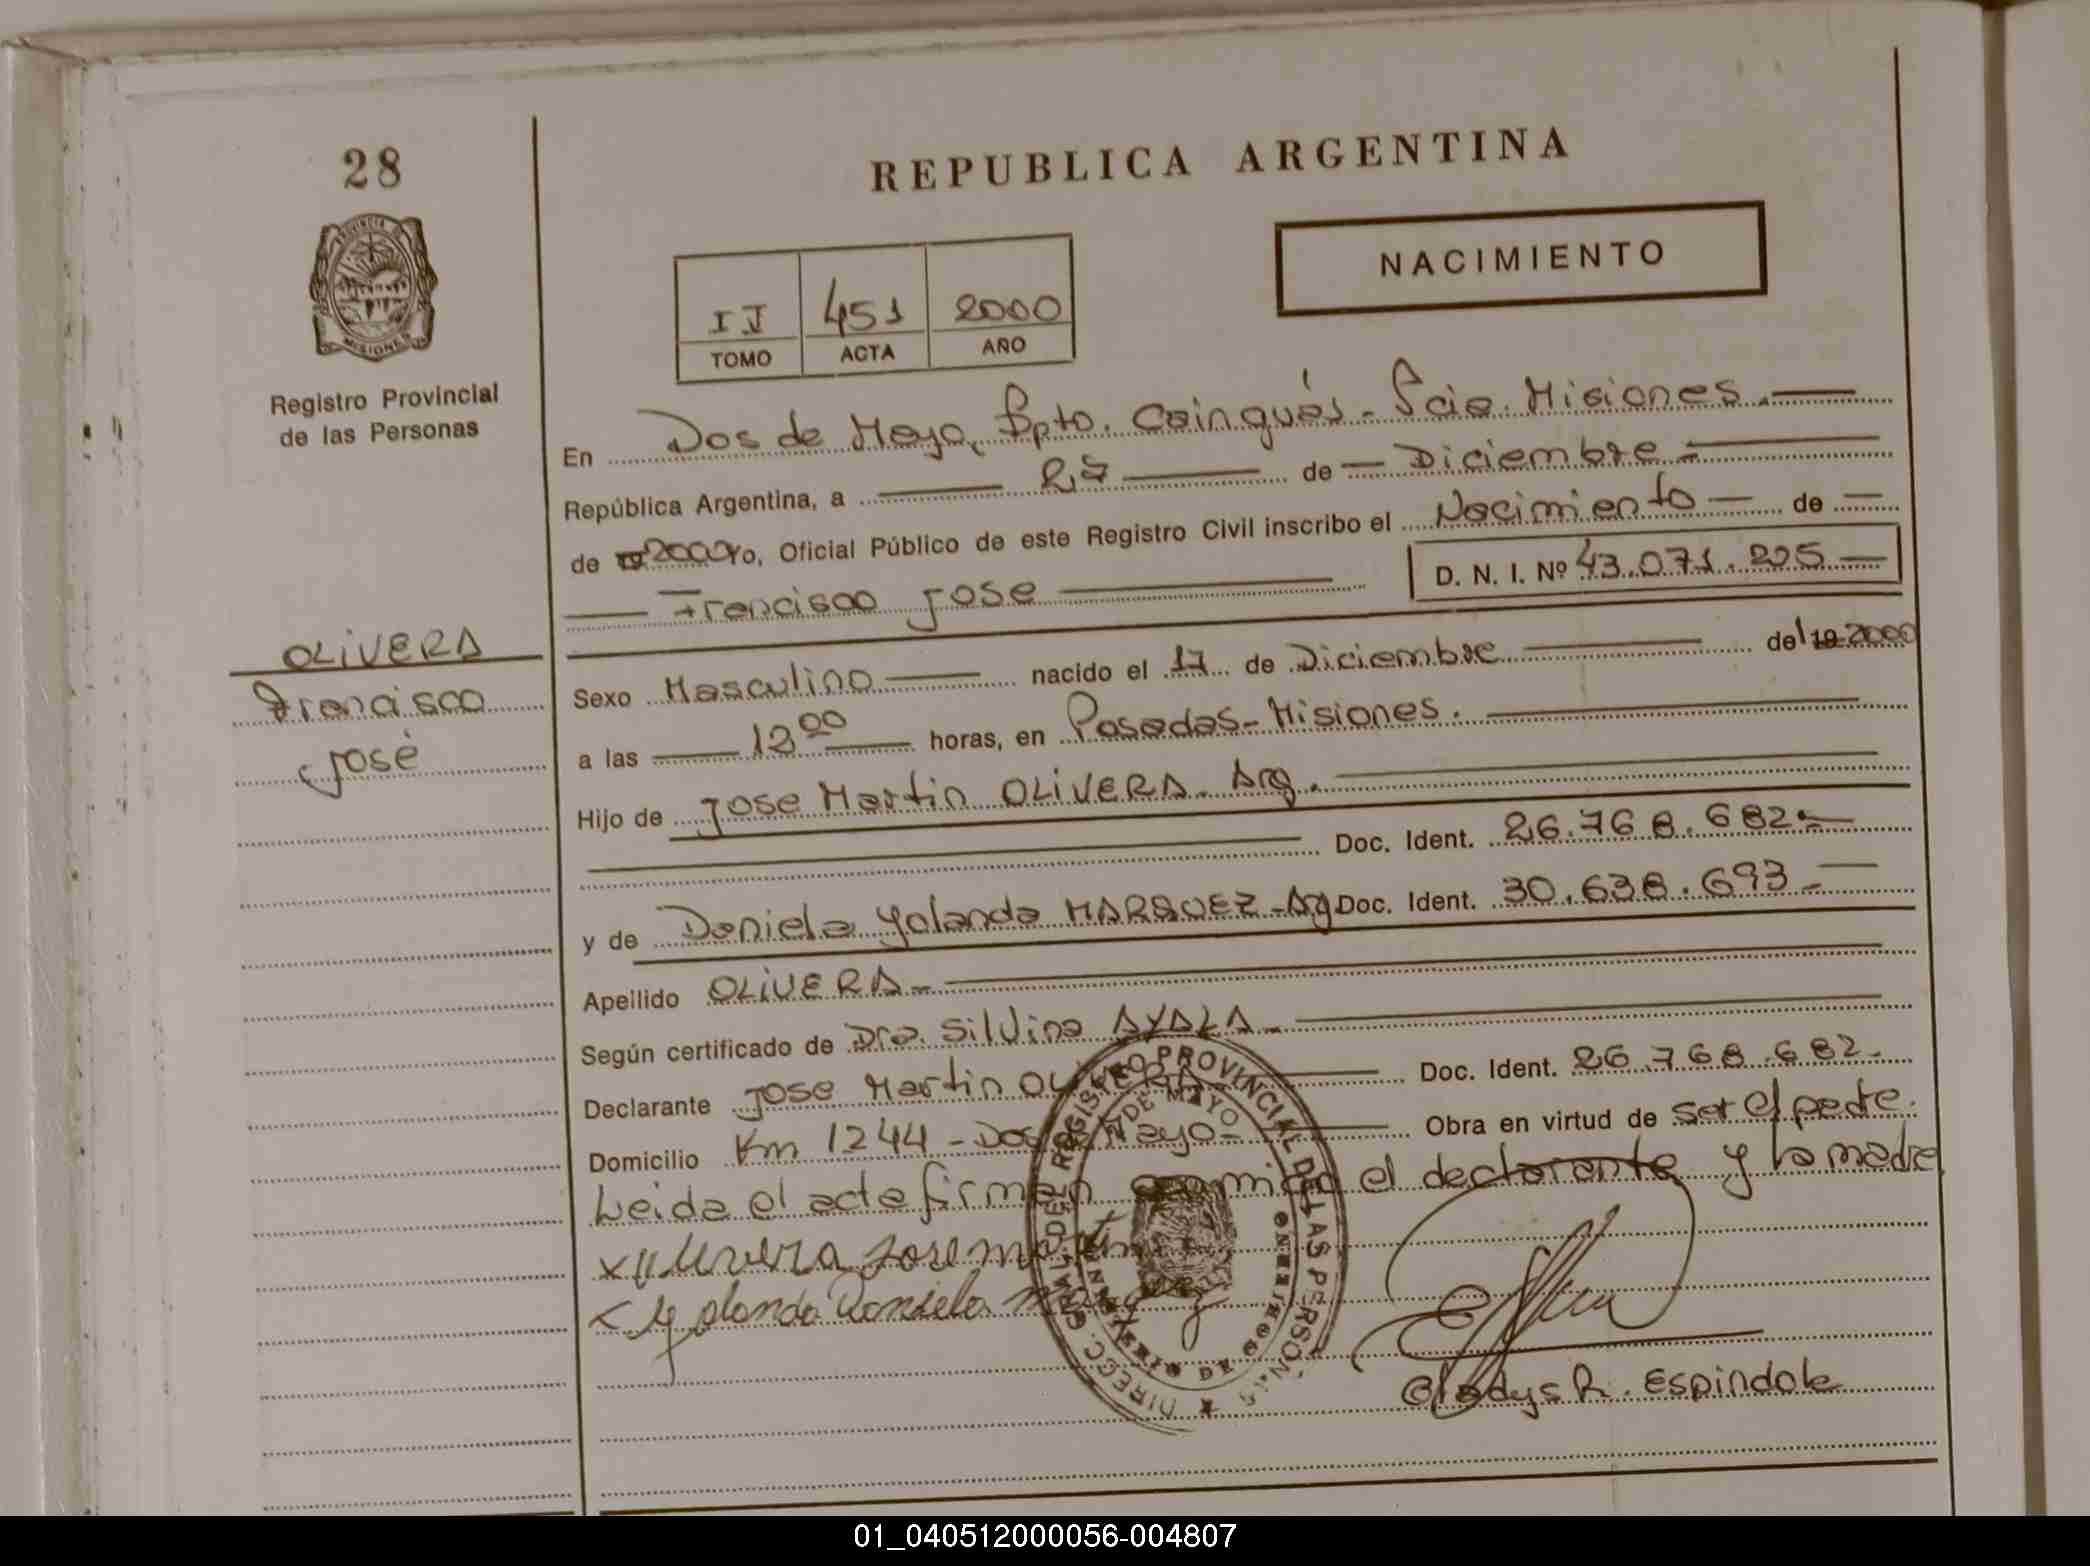 28
REPUBLICA ARGENTINA
NACIMIENTO
PROVINCIA
MISIONES
Registro Provincial
de las Personas
IJ 451 2000
TOMO ACTA AÑO
En Dos de Mayo, Dpto. Cainguás - Pcia. Misiones.
República Argentina, a 27 de Diciembre
de 2000 Yo, Oficial Público de este Registro Civil inscribo el Nacimiento de
Francisco Jose D. N. I. Nº 43.071.225
OLIVERA
Francisco
José
Sexo Masculino nacido el 17 de Diciembre del 19 2000
a las 12 00 horas, en Posadas - Misiones.
Hijo de Jose Martin OLIVERA. Arg.
Doc. Ident. 26.768.682.-
y de Daniela Yolanda MARQUEZ - Arg Doc. Ident. 30.638.693.-
Apellido OLIVERA -
Según certificado de Dra. Silvina AYALA -
Declarante Jose Martin OLIVERA Doc. Ident. 26.768.682.-
Domicilio Km 1244 - Dos de Mayo - Obra en virtud de ser el padre.
Leida el acta firman conmigo el declarante y la madre
x Olivera Jose Martin
x Yolanda Daniela Marquez
DIRECC. GRAL. DEL REGISTRO PROVINCIAL DE LAS PERSONAS
DE MAYO
Gladys R. Espindola
01_040512000056-004807